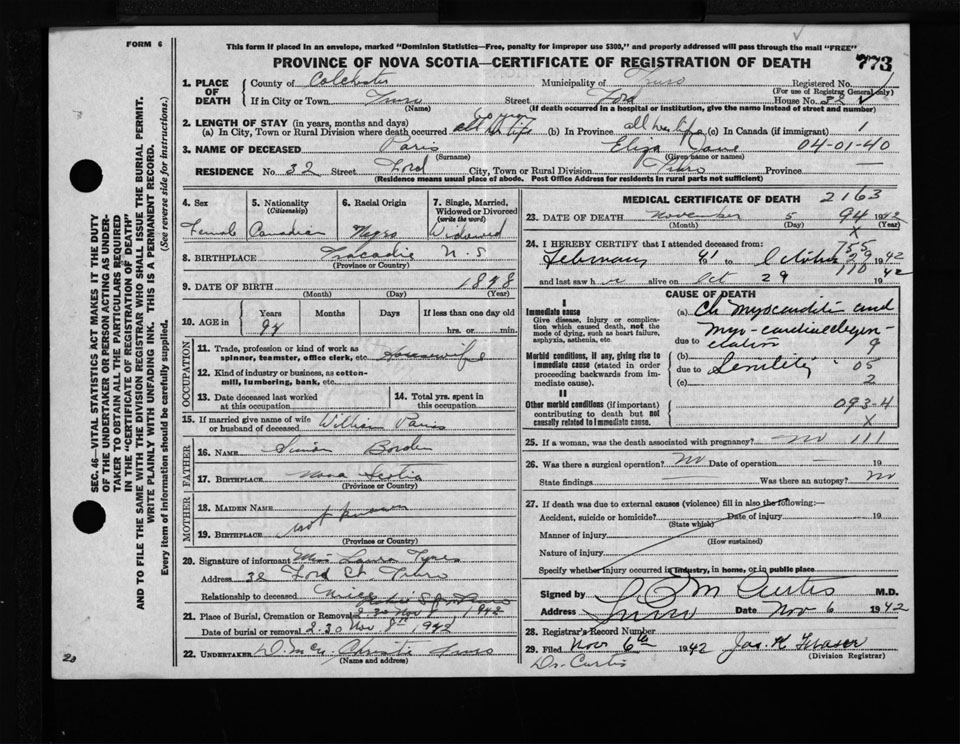 FORM 6
This form if placed in an envelope, marked "Dominion Statistics—Free, penalty for improper use $300," and properly addressed will pass through the mail "FREE"
PROVINCE OF NOVA SCOTIA—CERTIFICATE OF REGISTRATION OF DEATH
773
1. PLACE OF DEATH
County of Colchester Municipality of Truro Registered No.
(For use of Registrar General only)
If in City or Town Truro Street Ford House No. 32
(Name) (If death occurred in a hospital or institution, give the name instead of street and number)
2. LENGTH OF STAY (in years, months and days)
(a) In City, Town or Rural Division where death occurred (b) In Province all her life (c) In Canada (if immigrant) 1
3. NAME OF DECEASED Paris Eliza Jane 04-01-40
(Surname) (Given name or names)
RESIDENCE No. 32 Street Ford City, Town or Rural Division Truro Province
(Residence means usual place of abode. Post Office Address for residents in rural parts not sufficient)
4. Sex
Female
5. Nationality (Citizenship)
Canadian
6. Racial Origin
Negro
7. Single, Married, Widowed or Divorced (write the word)
Widowed
8. BIRTHPLACE Tracadie N.S
(Province or Country)
9. DATE OF BIRTH 1848
(Month) (Day) (Year)
10. AGE in Years Months Days If less than one day old
94 hrs. or min.
OCCUPATION
11. Trade, profession or kind of work as spinner, teamster, office clerk, etc. Housewife
12. Kind of industry or business, as cotton-mill, lumbering, bank, etc.
13. Date deceased last worked at this occupation
14. Total yrs. spent in this occupation
15. If married give name of wife or husband of deceased William Paris
FATHER
16. NAME Simon Borden
17. BIRTHPLACE Nova Scotia
(Province or Country)
MOTHER
18. MAIDEN NAME
not known
19. BIRTHPLACE
(Province or Country)
20. Signature of informant Miss Laura Tynes
Address 32 Ford St Truro
Relationship to deceased Niece
21. Place of Burial, Cremation or Removal
Date of burial or removal 2.30 Nov 8th 1942
22. UNDERTAKER Christie Truro
(Name and address)
MEDICAL CERTIFICATE OF DEATH 2163
23. DATE OF DEATH November 5 94 1942
(Month) (Day) X (Year)
24. I HEREBY CERTIFY that I attended deceased from:
755
February 41 to October 29 1942
110
and last saw h er alive on Oct 29 1942
CAUSE OF DEATH
I
Immediate cause
Give disease, injury or complication which caused death, not the mode of dying, such as heart failure, asphyxia, asthenia, etc.
(a) Ch myocarditis and
myo-cardial degen-
due to eration 9
Morbid conditions, if any, giving rise to immediate cause (stated in order proceeding backwards from immediate cause).
(b)
due to Senility 05
(c) 2
II
Other morbid conditions (if important) contributing to death but not causally related to immediate cause.
093-4
X
25. If a woman, was the death associated with pregnancy? no 111
26. Was there a surgical operation? No Date of operation 19
State findings Was there an autopsy? No
27. If death was due to external causes (violence) fill in also the following:
Accident, suicide or homicide? Date of injury 19
(State which)
Manner of injury
(How sustained)
Nature of injury
Specify whether injury occurred in industry, in home, or in public place
Signed by Curtis M.D.
Address Truro Date Nov 6 1942
28. Registrar's Record Number
29. Filed Nov 6th 1942 Jas. K Fraser
(Division Registrar)
Dr. Curtis
SEC. 46—VITAL STATISTICS ACT MAKES IT THE DUTY
OF THE UNDERTAKER OR PERSON ACTING AS UNDER-
TAKER TO OBTAIN ALL THE PARTICULARS REQUIRED
IN THE "CERTIFICATE OF REGISTRATION OF DEATH"
AND TO FILE THE SAME WITH THE DIVISION REGISTRAR WHO SHALL ISSUE THE BURIAL PERMIT.
WRITE PLAINLY WITH UNFADING INK. THIS IS A PERMANENT RECORD.
Every item of information should be carefully supplied. (See reverse side for instructions.)